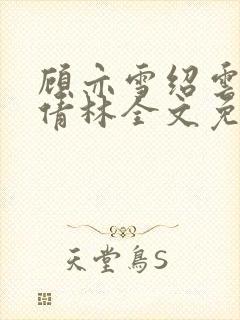 顾亦雪绍云
倩林全文免
天堂鸟S